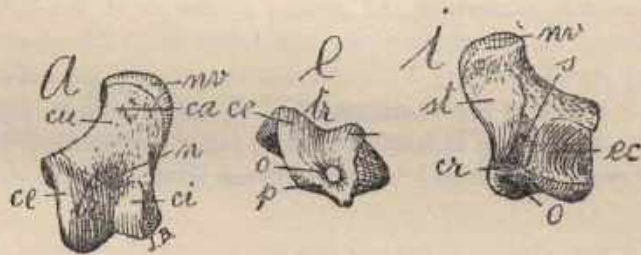 a
nv
cu
ca
n
ce
ci
J.B.
l
ce
tr
o
p
i
nv
s
st
ec
cr
o